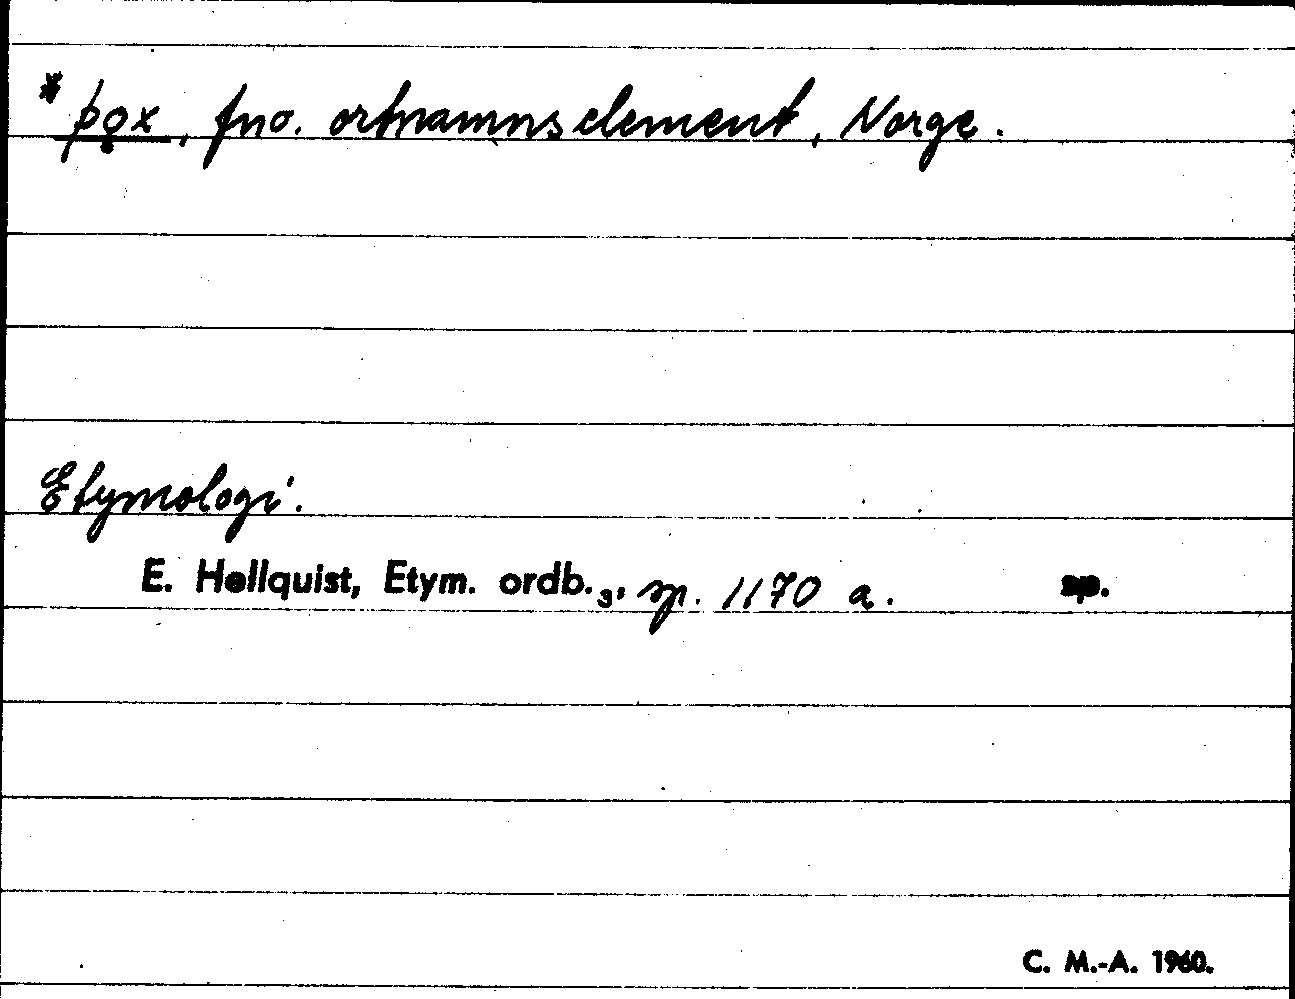 *þǫx, fno. ortnamnselement, Norge.
Etymologi.
E. Hellquist, Etym. ordb.₃, sp. 1170 a. sp.
C. M.-A. 1960.